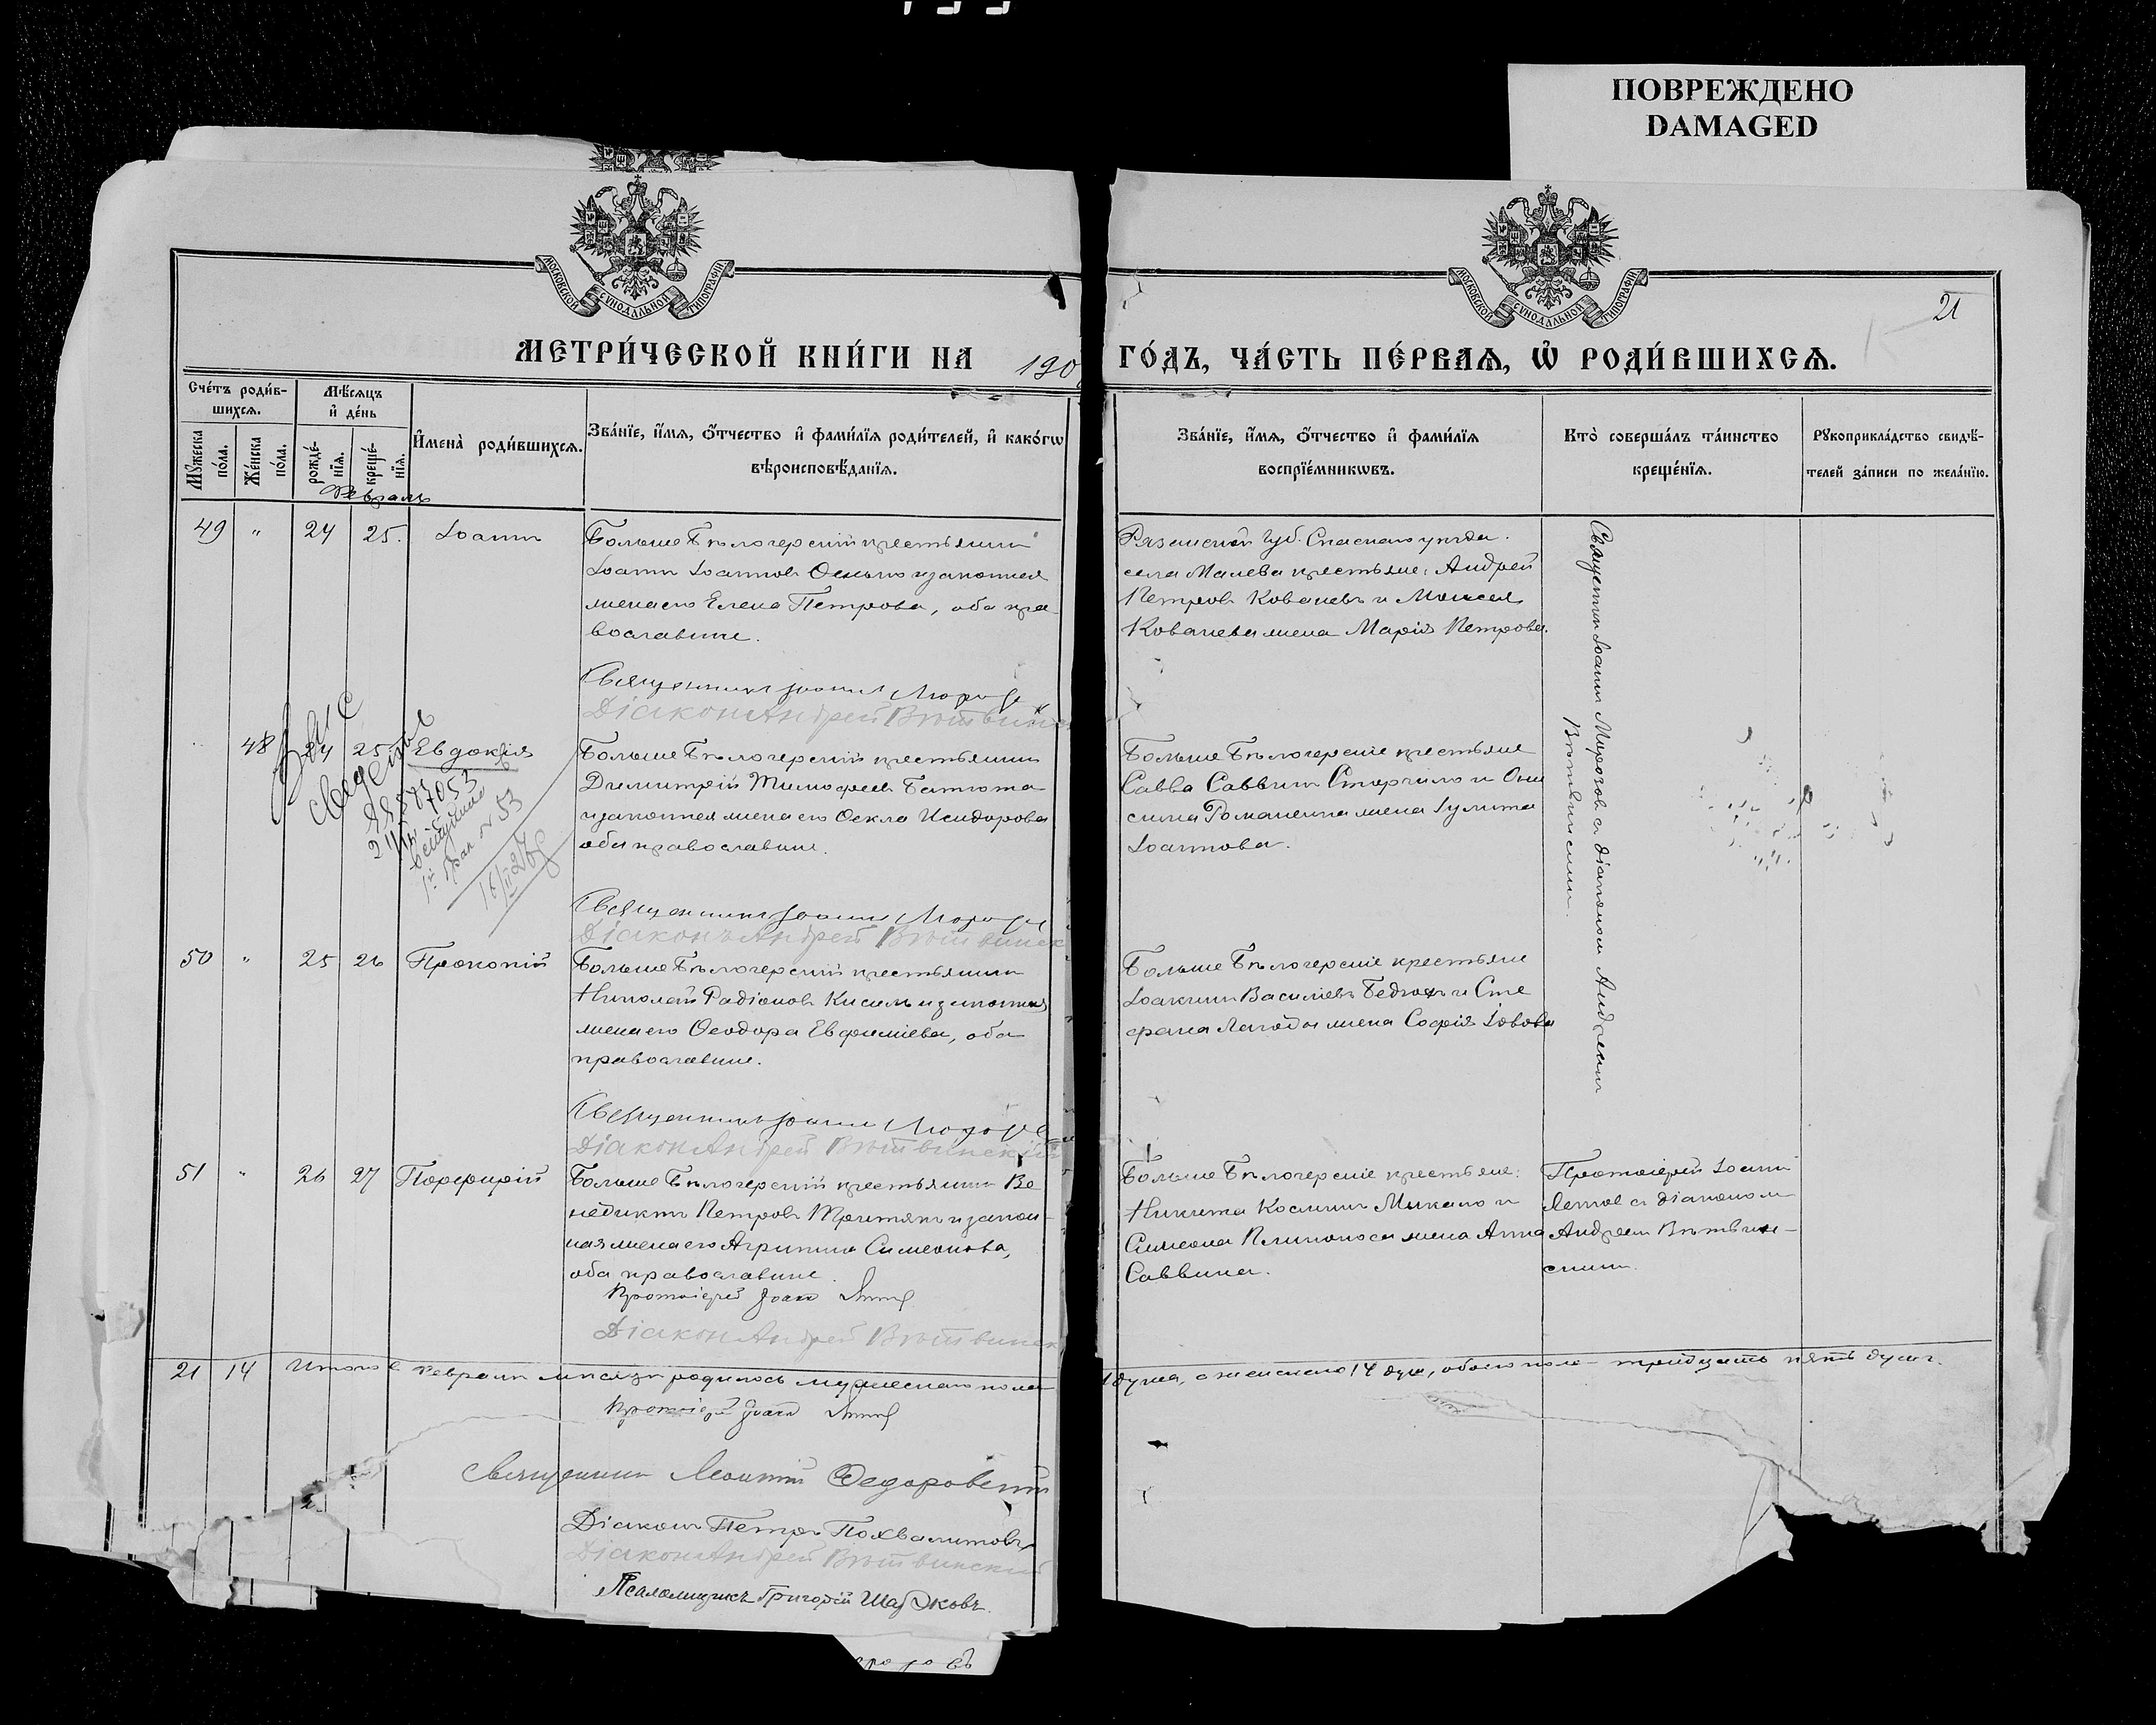 ПОВРЕЖДЕНО
DAMAGED
МОСКОВСКОЙ СѴНОДАЛЬНОЙ ТИПОГРАФІИ
МОСКОВСКОЙ СѴНОДАЛЬНОЙ ТИПОГРАФІИ
21
МЕТРИ́ЧЕСКОЙ КНИ́ГИ НА 190
ГО́ДЪ, ЧА́СТЬ ПЕ́РВАѦ, Ѡ҆ РОДИ́ВШИХСѦ.
Сче́тъ роди́в-
шихсѧ.
Мꙋ́жеска по́ла.
Же́нска по́ла.
Мѣ́сѧцъ
и҆ де́нь
рожде́-
нїѧ.
креще́-
нїѧ.
И҆мена̀ роди́вшихсѧ.
Зва́нїе, и҆́мѧ, ѻ҆́тчество и҆ фами́лїѧ роди́телей, и҆ како́гѡ
вѣроисповѣ́данїѧ.
Зва́нїе, и҆́мѧ, ѻ҆́тчество и҆ фами́лїѧ
воспрїе́мникѡвъ.
Кто̀ соверша́лъ та́инство
креще́нїѧ.
Рꙋкоприкла́дство свидѣ́-
телей за́писи по жела́нїю.
Февраль
49 " 24 25. Іоаннъ
Больше Бѣлозерскій крестьянинъ
Іоаннъ Іоанновъ и законная
жена его Елена Петрова, оба пра
вославные.
Священникъ Іоаннъ
Діаконъ Андрей Вѣтвинск
Рязанской Губ. Спаскаго уѣзда
села крестьяне: Андрей
Петровъ и
жена Марія Петрова.
Священникъ Іоаннъ Морозовъ съ діакономъ Андреемъ
Вѣтвинскимъ.
48 24 25 Евдокія
Больше Бѣлозерскій крестьянинъ
Димитрій Тимофеевъ Батюта
и законная жена его Ѳекла Исидорова
оба православные.
Священникъ Іоаннъ
Діаконъ Андрей Вѣтвинск
Больше Бѣлозерскіе крестьяне
Савва Саввинъ и Они
сима Романенка жена Іулита
Іоаннова.
50 " 25 26 Прокопій
Больше Бѣлозерскій крестьянинъ
Николай Радіоновъ Кисиль и законная
жена его Ѳеодора Евфиміева, оба
православные.
Священникъ Іоаннъ
Діаконъ Андрей Вѣтвинскій
Больше Бѣлозерскіе крестьяне
Іоакимъ Василіевъ и Сте
фана Лагоды жена Софія Іовова
51 " 26 27 Порфирій
Больше Бѣлозерскій крестьянинъ Ве
недиктъ Петровъ Третякъ и закон-
ная жена его Агрипина Симеонова,
оба православные.
Протоіерей Іоаннъ
Діаконъ Андрей Вѣтвинск
Больше Бѣлозерскіе крестьяне:
Никита Косминъ и
Симеона жена Анна
Саввина.
Протоіерей Іоаннъ
съ діакономъ
Андреем Вѣтвин-
скимъ.
21 14 Итого въ Февралѣ мѣсяцѣ родилось мужескаго пола
душа, а женскаго 14 душ, обоего пола - тридцать пять душъ.
Протоіерей Іоаннъ
Священникъ Леонтій Федоровскій
Діаконъ Петръ Похвалитовъ
Діаконъ Андрей Вѣтвинскій
Псаломщикъ Григорій